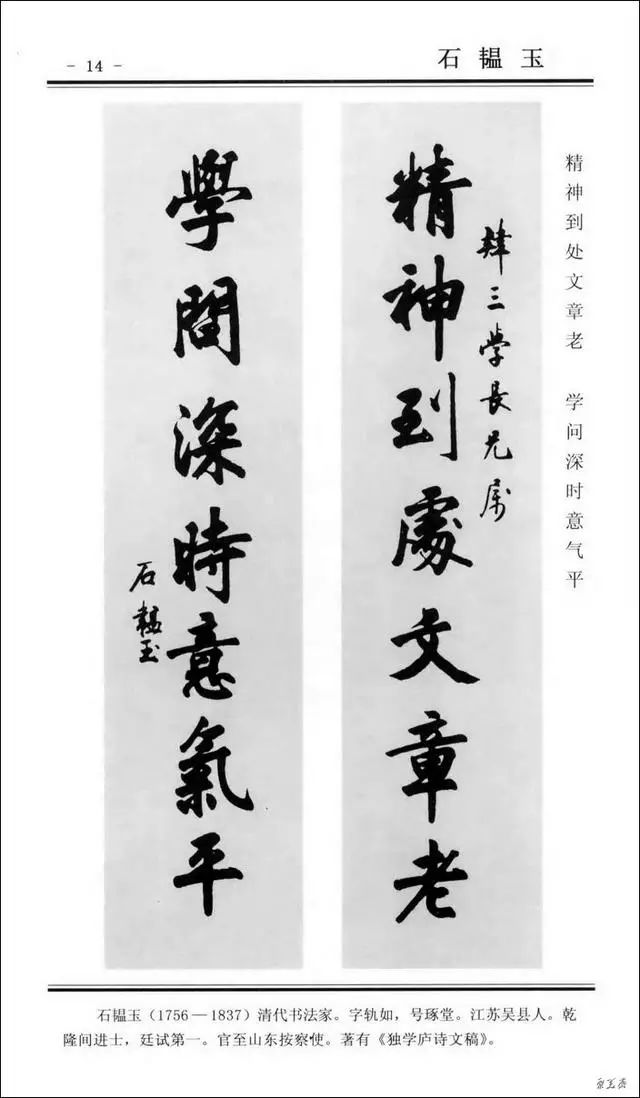 - 14 -
石韫玉
精神到处文章老 学问深时意气平
肄三學長兄属
精神到處文章老
學問深時意氣平
石韞玉
石韫玉（1756—1837）清代书法家。字轨如，号琢堂。江苏吴县人。乾
隆间进士，廷试第一。官至山东按察使。著有《独学庐诗文稿》。